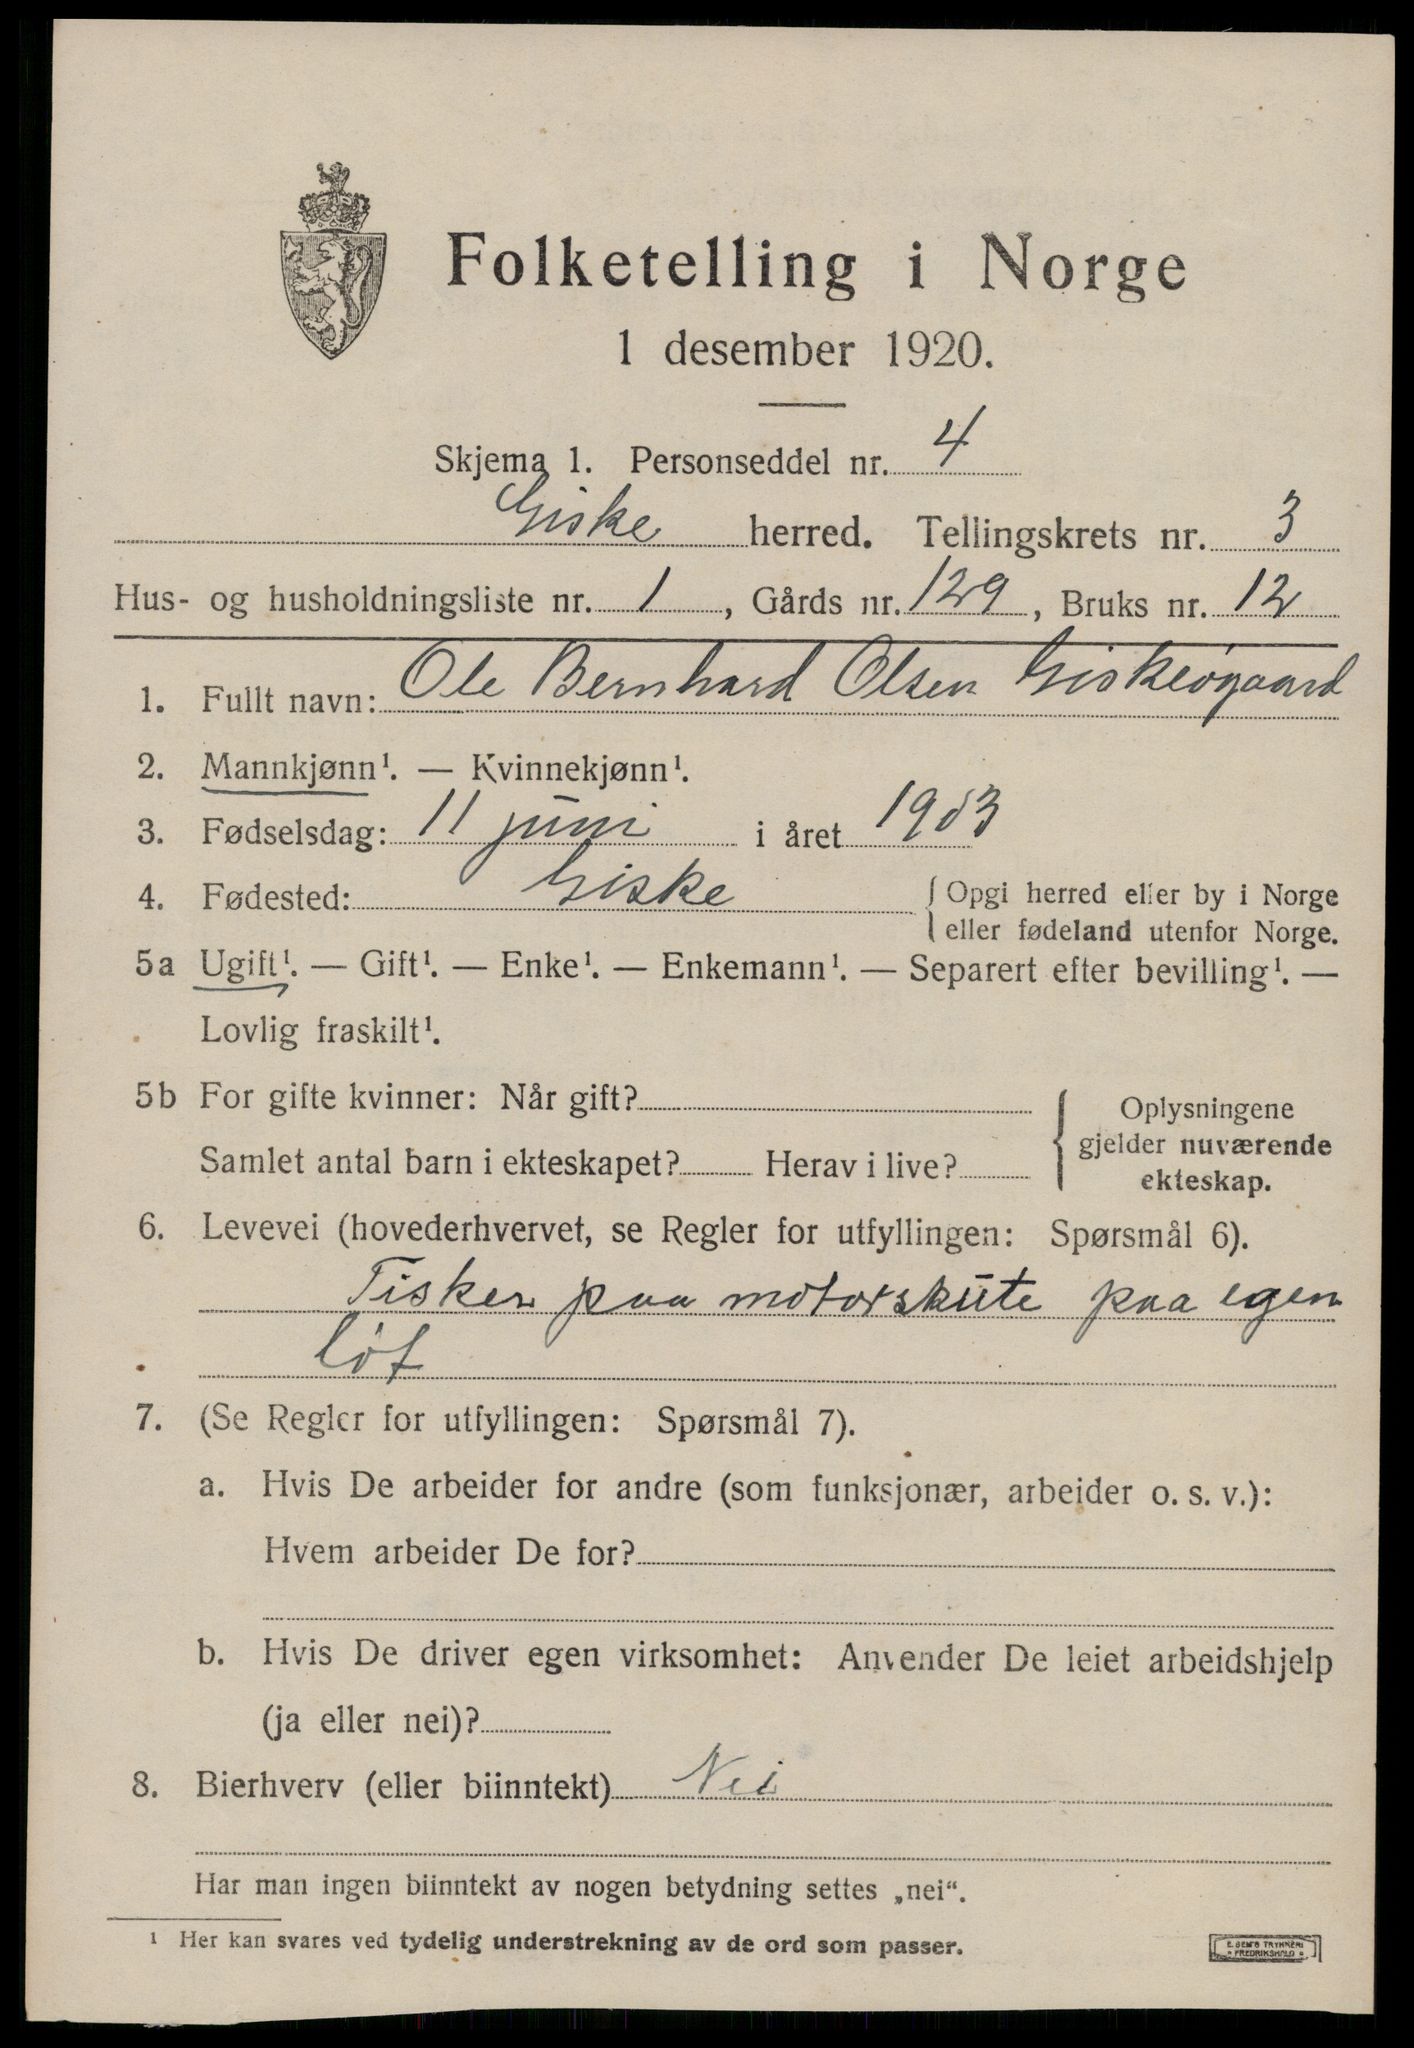 Folketelling i Norge
1 desember 1920.
Skjema 1. Personseddel nr. 4
Giske herred. Tellingskrets nr. 3
Hus- og husholdningsliste nr. 1, Gårds nr. 129, Bruks nr. 12
1. Fullt navn: Ole Bernhard Olsen Giskeøgaard
2. Mannkjønn¹. — Kvinnekjønn¹.
3. Fødselsdag: 11 juni i året 1903
4. Fødested: Giske { Opgi herred eller by i Norge
eller fødeland utenfor Norge.
5a Ugift¹. — Gift¹. — Enke¹. — Enkemann¹. — Separert efter bevilling¹. —
Lovlig fraskilt¹.
5b For gifte kvinner: Når gift? { Oplysningene
gjelder nuværende
Samlet antal barn i ekteskapet? Herav i live?
ekteskap.
6. Levevei (hovederhvervet, se Regler for utfyllingen: Spørsmål 6).
Fisker paa motorskute paa egen
løt
7. (Se Regler for utfyllingen: Spørsmål 7).
a. Hvis De arbeider for andre (som funksjonær, arbeider o. s. v.):
Hvem arbeider De for?
b. Hvis De driver egen virksomhet: Anvender De leiet arbeidshjelp
(ja eller nei)?
8. Bierhverv (eller biinntekt) Nei
Har man ingen biinntekt av nogen betydning settes „nei“.
¹ Her kan svares ved tydelig understrekning av de ord som passer.
E. SEM'S TRYKKERI
FREDRIKSHALD